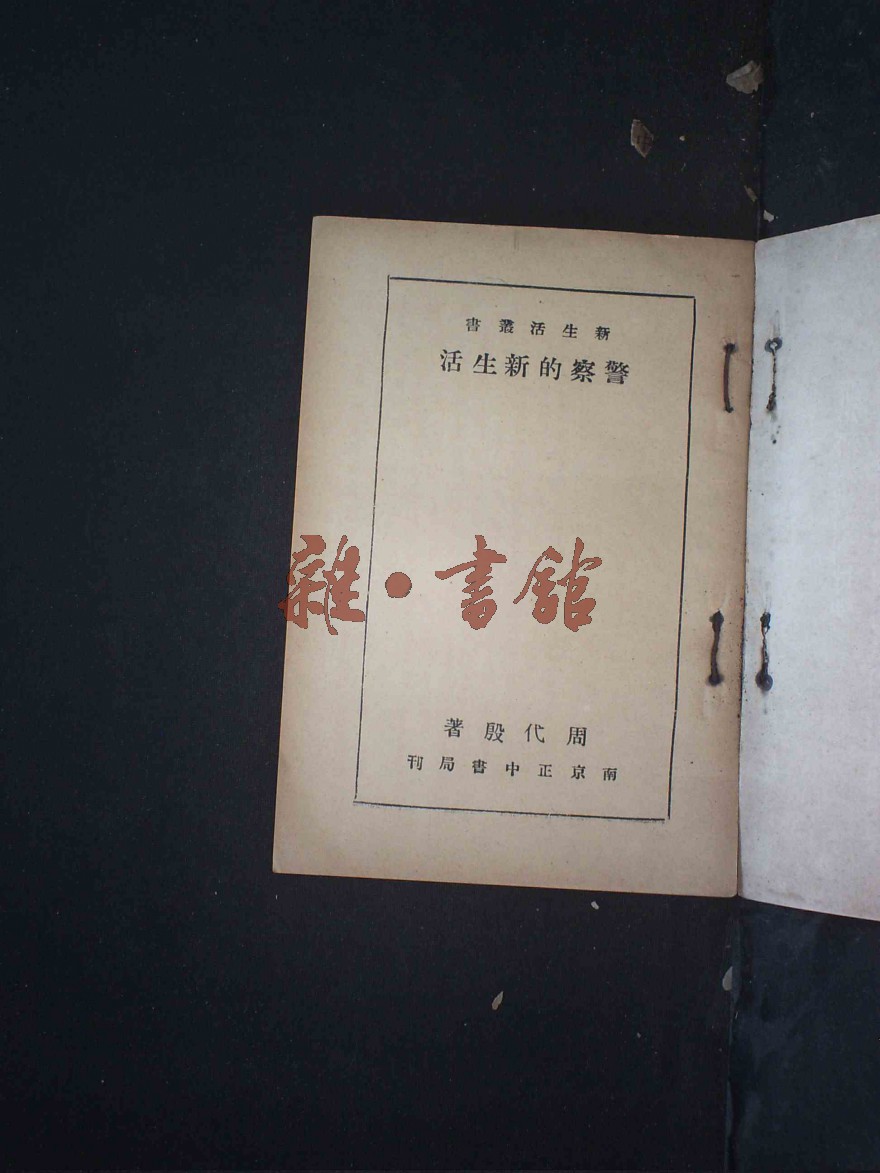 新生活叢書
警察的新生活
雜·書館
周代殷著
南京正中書局刊